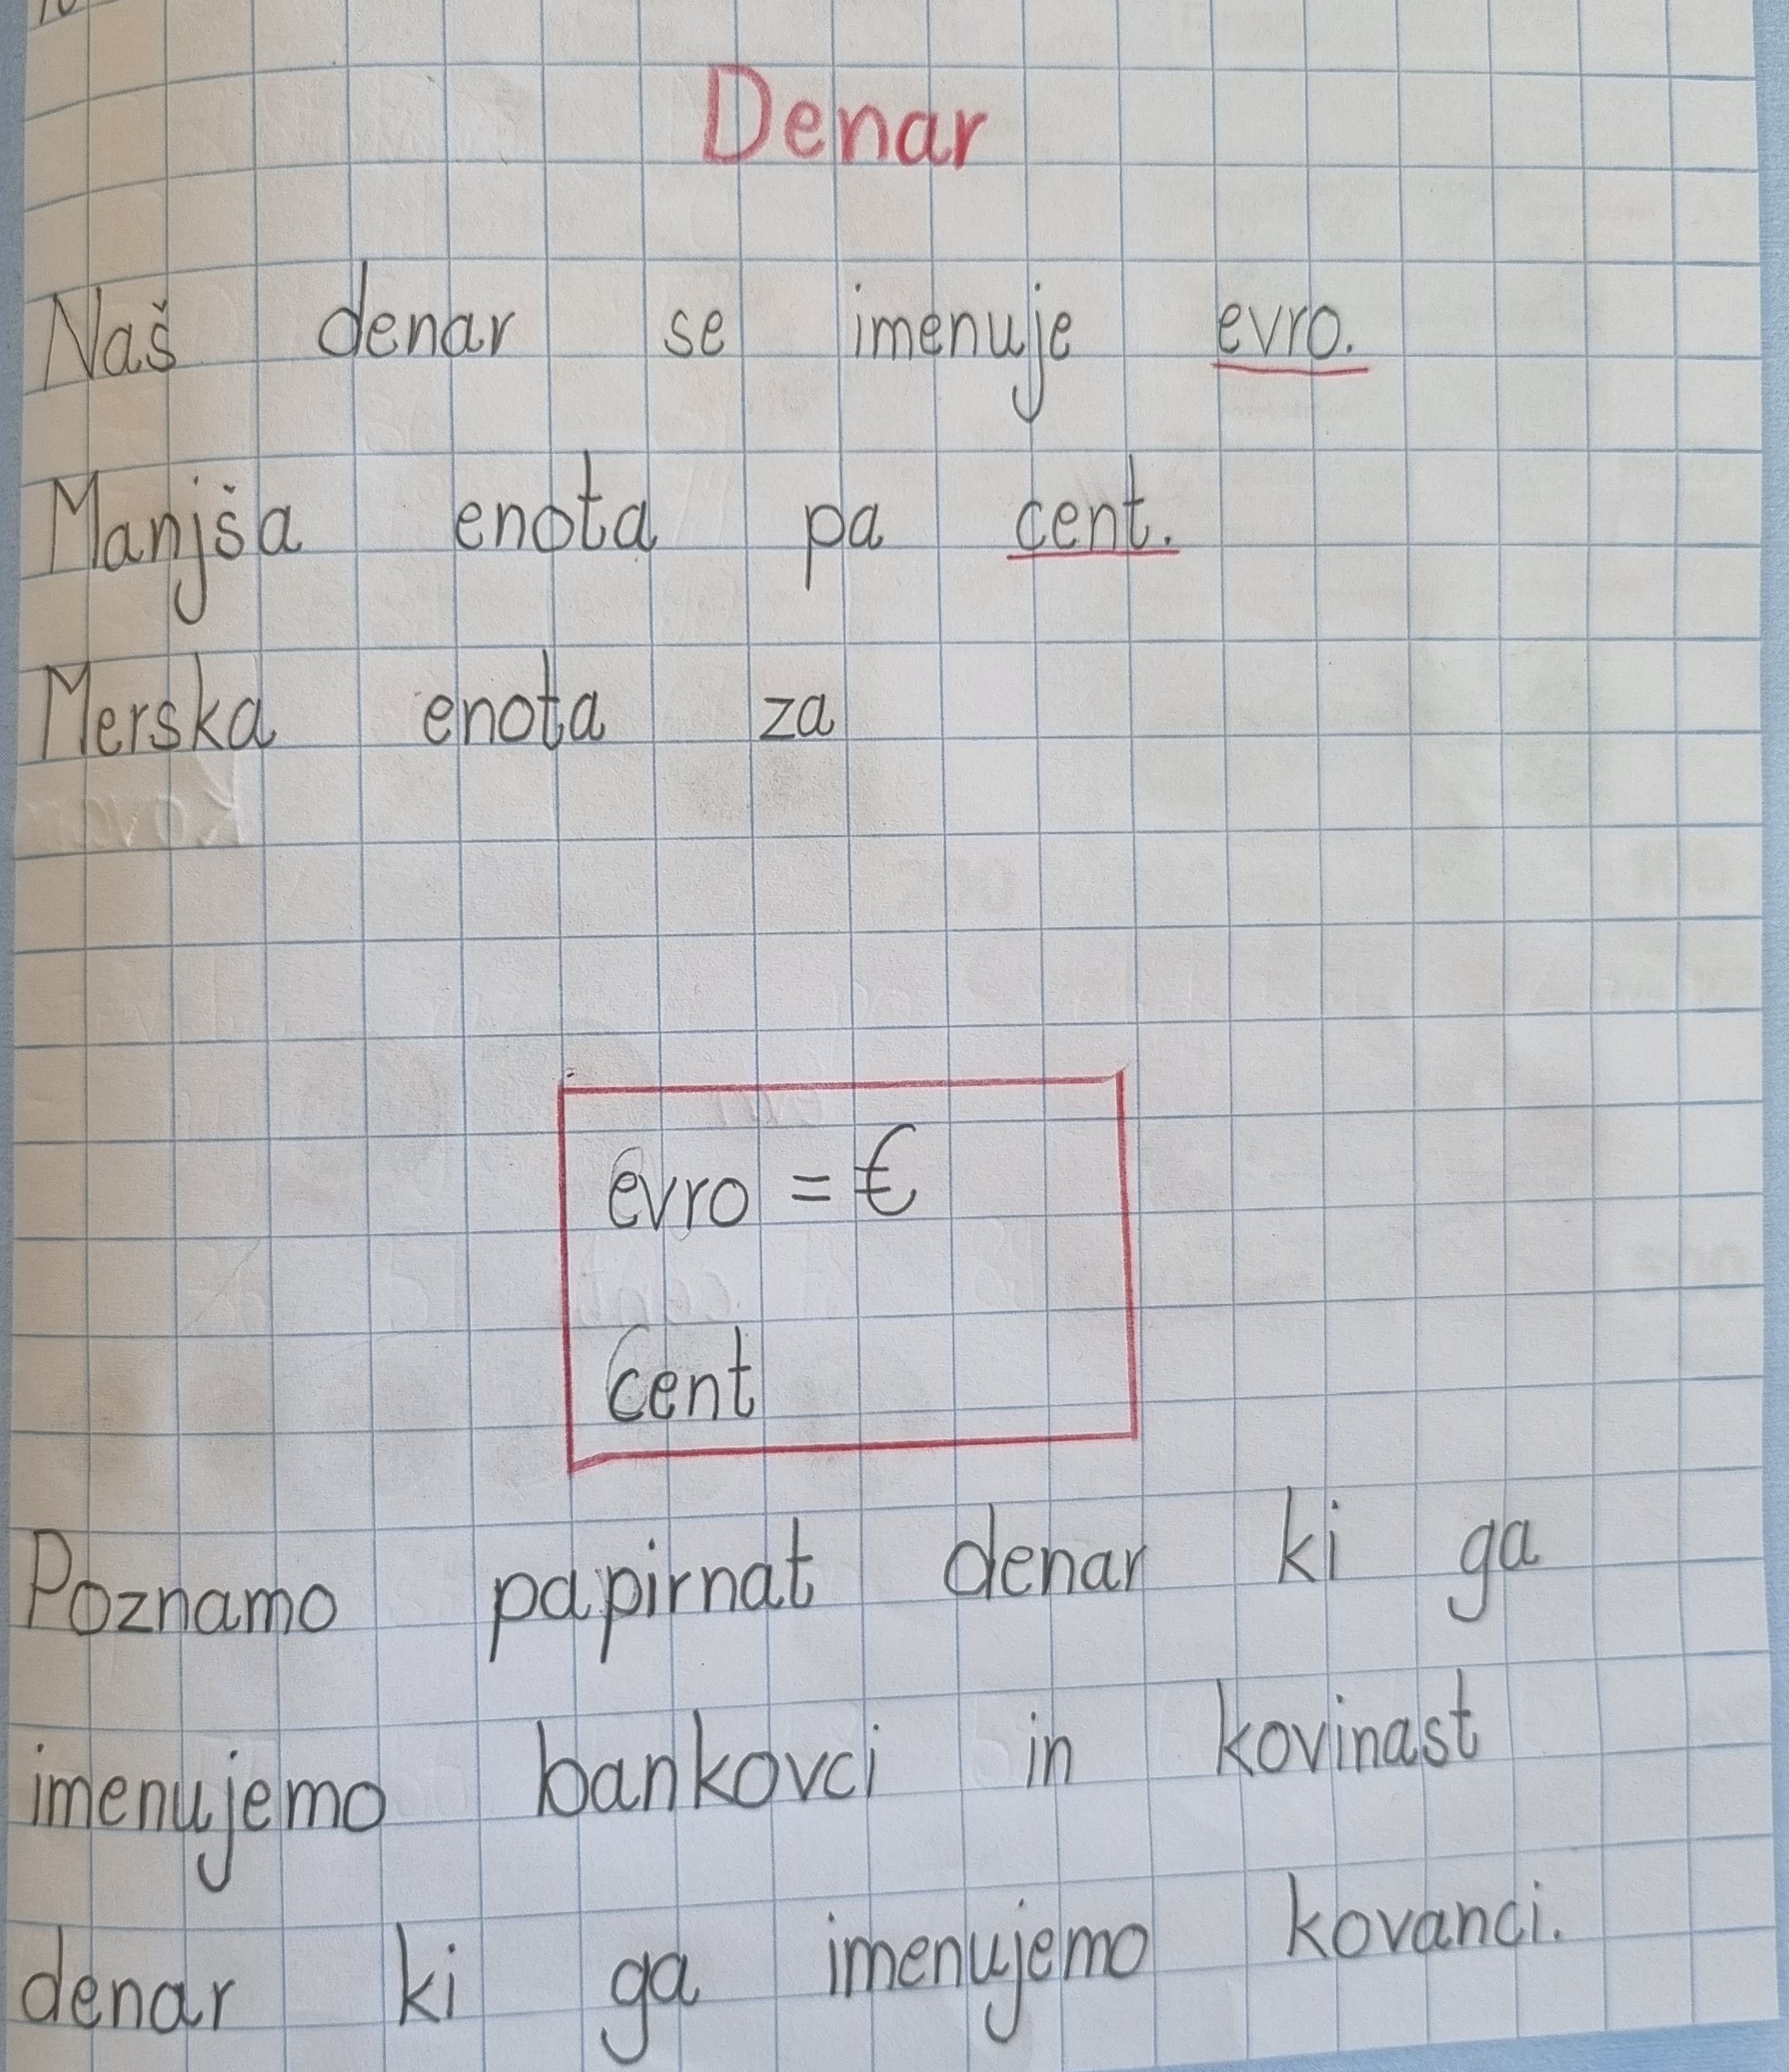 Denar
Naš denar se imenuje evro.
Manjša enota pa cent.
Merska enota za
evro = €
cent
Poznamo papirnat denar ki ga
imenujemo bankovci in kovinast
denar ki ga imenujemo kovanci.